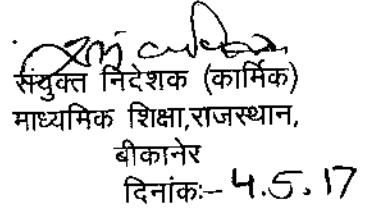 संयुक्त निदेशक (कार्मिक)
माध्यमिक शिक्षा,राजस्थान,
बीकानेर
दिनांकः– 4.5.17